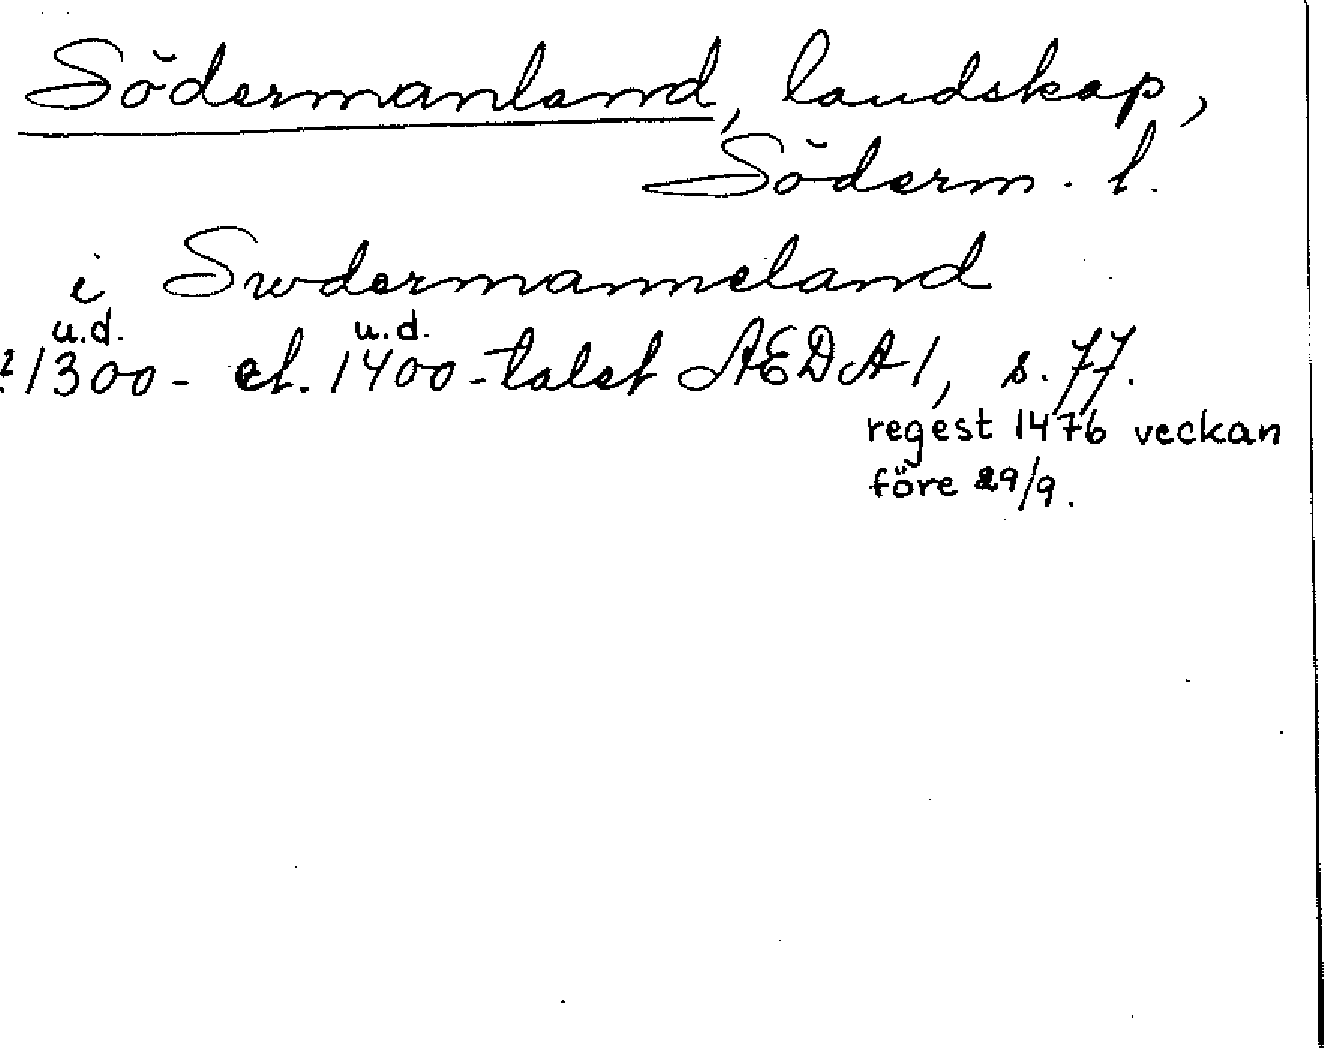 Södermanland, landskap,
Söderm. l.
i Swdermanneland
u.d. u.d.
? 1300- el. 1400-talet ÆDA 1, s. 77.
regest 1476 veckan
före 29/9.